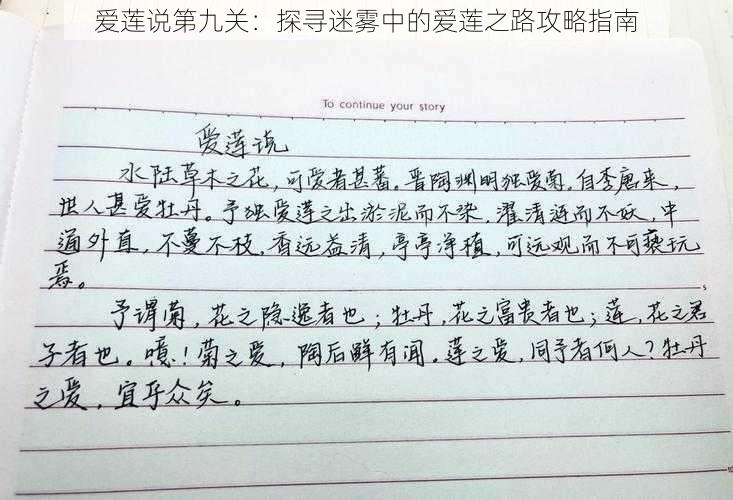 爱莲说第九关：探寻迷雾中的爱莲之路攻略指南
To continue your story
爱莲说
水陆草木之花，可爱者甚蕃。晋陶渊明独爱菊。自李唐来，
世人甚爱牡丹。予独爱莲之出淤泥而不染，濯清涟而不妖，中
通外直，不蔓不枝，香远益清，亭亭净植，可远观而不可亵玩
焉。
5
予谓菊，花之隐逸者也；牡丹，花之富贵者也；莲，花之君
子者也。噫！菊之爱，陶后鲜有闻。莲之爱，同予者何人？牡丹
之爱，宜乎众矣。
10